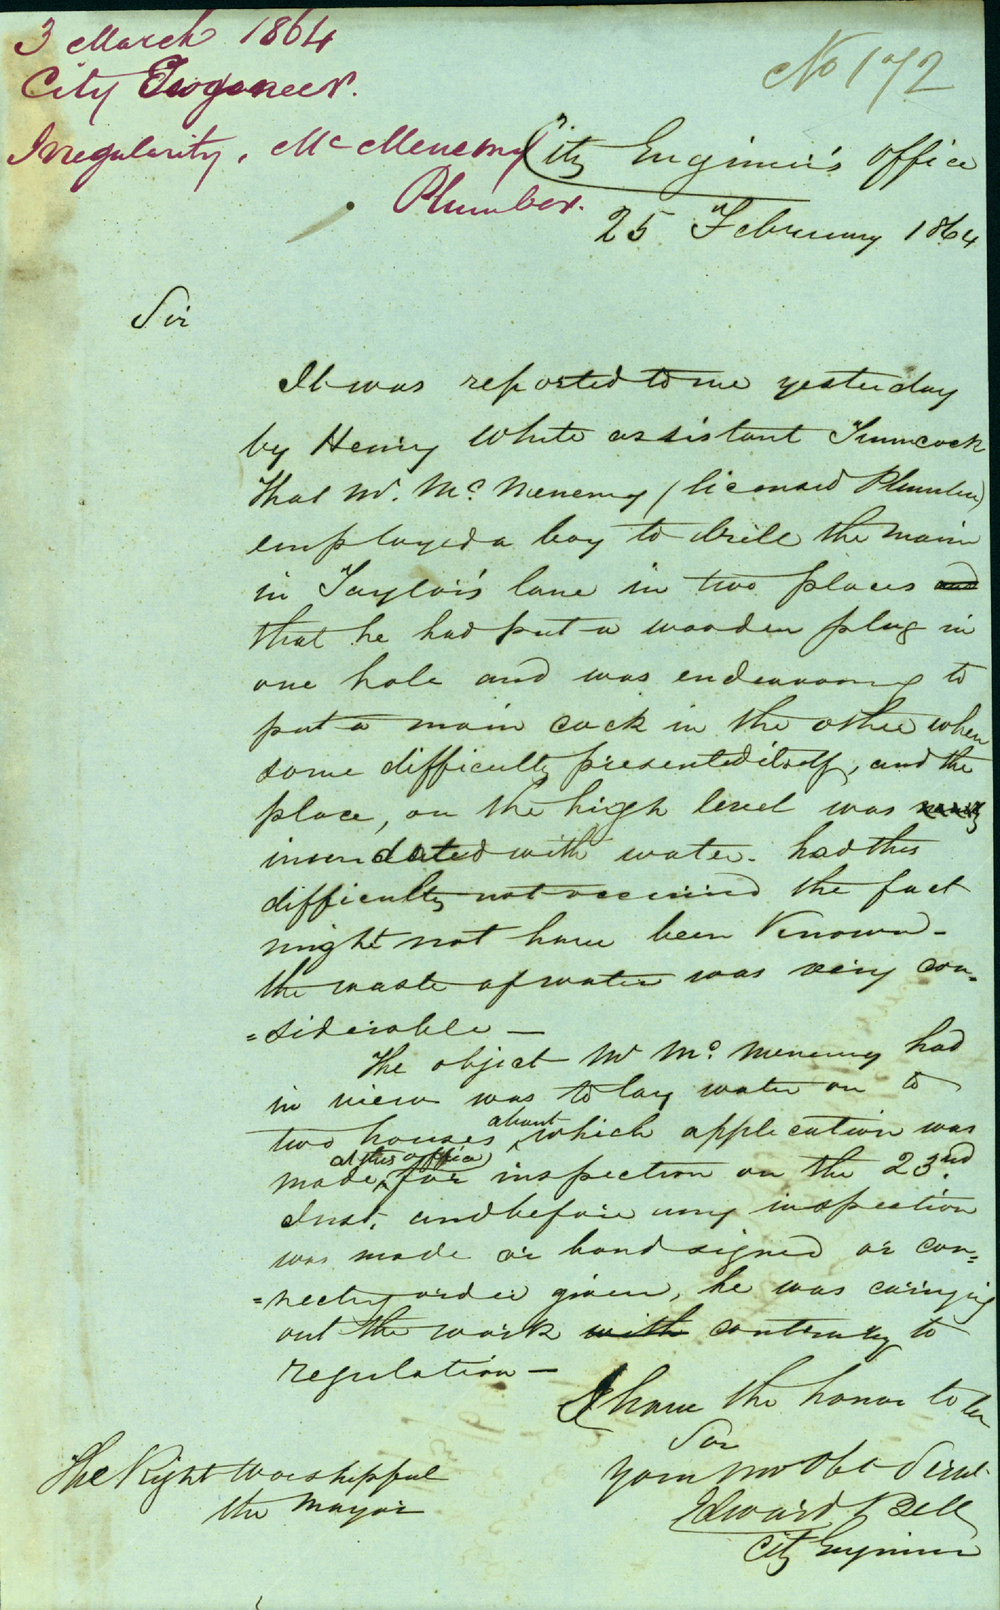 3 March 1864
City Engineer.
Irregularity, McMenemy
Plumber.
No 172
City Engineer's Office
25 February 1864
Sir
It was reported to me yesterday
by Henry White assistant Turncock
that Mr. Mc. Menemy (licensed Plumber)
employed a boy to drill the main
in Taylor's lane in two places and
that he had put a wooden plug in
one hole and was endeavoring to
put a main cock in the other when
some difficulty presented itself, and the
place, on the high level was nearly
inundated with water. had this
difficulty not occurred the fact
might not have been Known -
the waste of water was very con=
=siderable -
The object Mr Mc. Menemy had
in view was to lay water on to
two houses about which application was
made at this office for inspection on the 23nd
Inst, and before any inspection
was made or bond signed or con=
=necting order given, he was carrying
out the work with contrary to
regulation -
I have the honor to be
Sir
Your Mo Obt Servt
Edward Bell
City Engineer
The Right Worshipful
the Mayor